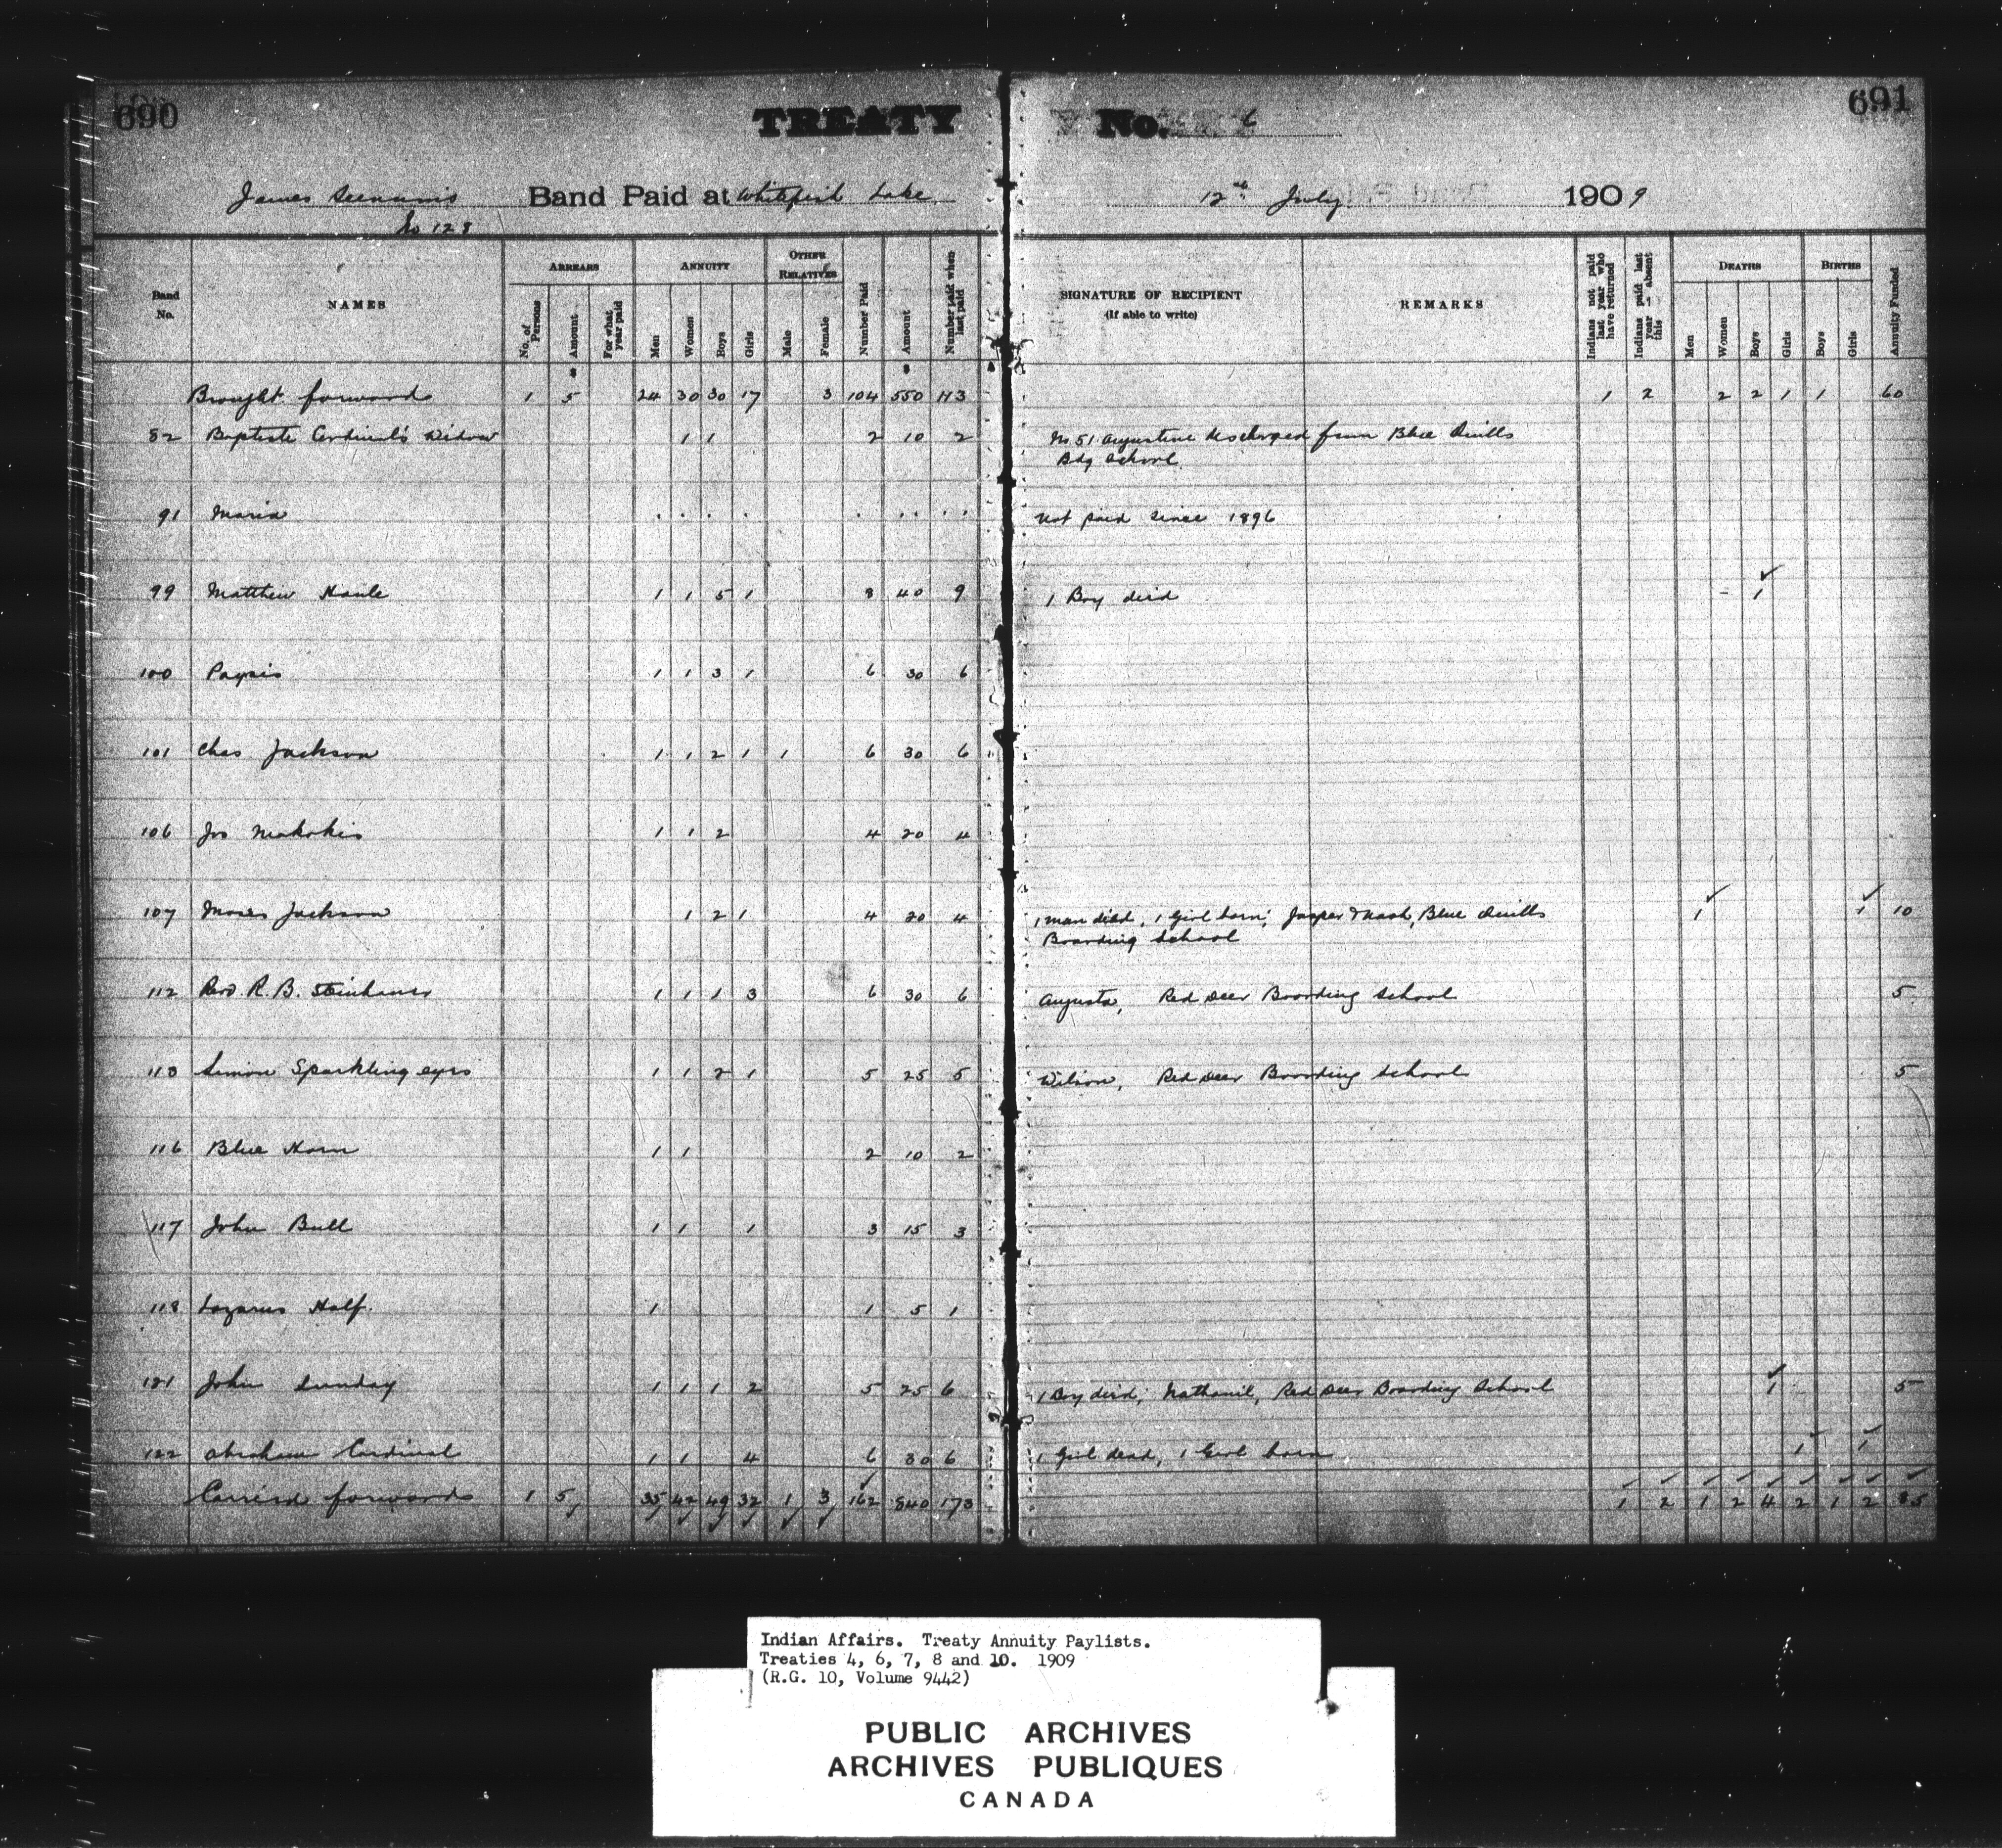 690
TREATY No. 6
691
James Seenum's Band Paid at Whitefish Lake 12th July 1909
No 128
Band No. NAMES ARREARS ANNUITY OTHER RELATIVES Number Paid Amount Number paid when last paid SIGNATURE OF RECIPIENT (If able to write) REMARKS Indians not paid last year who have returned Indians paid last year — absent this DEATHS BIRTHS Annuity Funded
No. of Persons Amount For what year paid Men Women Boys Girls Male Female Men Women Boys Girls Boys Girls
Brought forward 1 5 24 30 30 17 3 104 550 113 1 2 2 2 1 1 60
82 Baptiste Cardinal's Widow 1 1 2 10 2 No 51 Augustine discharged from Blue Quills
Bdg School
91 Maria Not paid since 1896
99 Matthew Houle 1 1 5 1 8 40 9 1 Boy died 1
100 Paysis 1 1 3 1 6 30 6
101 Chas Jackson 1 1 2 1 1 6 30 6
106 Jos Makokis 1 1 2 4 20 4
107 Moses Jackson 1 2 1 4 20 4 1 man died, 1 Girl born; Jasper & Noah, Blue Quills 1 1 10
Boarding School
112 Revd. R. B. Steinhauer 1 1 1 3 6 30 6 Augusta, Red Deer Boarding School 5
113 Simon Sparkling eyes 1 1 2 1 5 25 5 Wilson, Red Deer Boarding School 5
116 Blue Horn 1 1 2 10 2
117 John Bull 1 1 1 3 15 3
118 Lazarus Half. 1 1 5 1
121 John Sunday 1 1 1 2 5 25 6 1 Boy died; Nathaniel, Red Deer Boarding School 1 5
122 Abraham Cardinal 1 1 4 6 30 6 1 Girl dead, 1 Girl born 1 1
Carried forward 1 5 35 42 49 32 1 3 162 840 173 1 2 1 2 4 2 1 2 85
Indian Affairs. Treaty Annuity Paylists.
Treaties 4, 6, 7, 8 and 10. 1909
(R.G. 10, Volume 9442)
PUBLIC ARCHIVES
ARCHIVES PUBLIQUES
CANADA